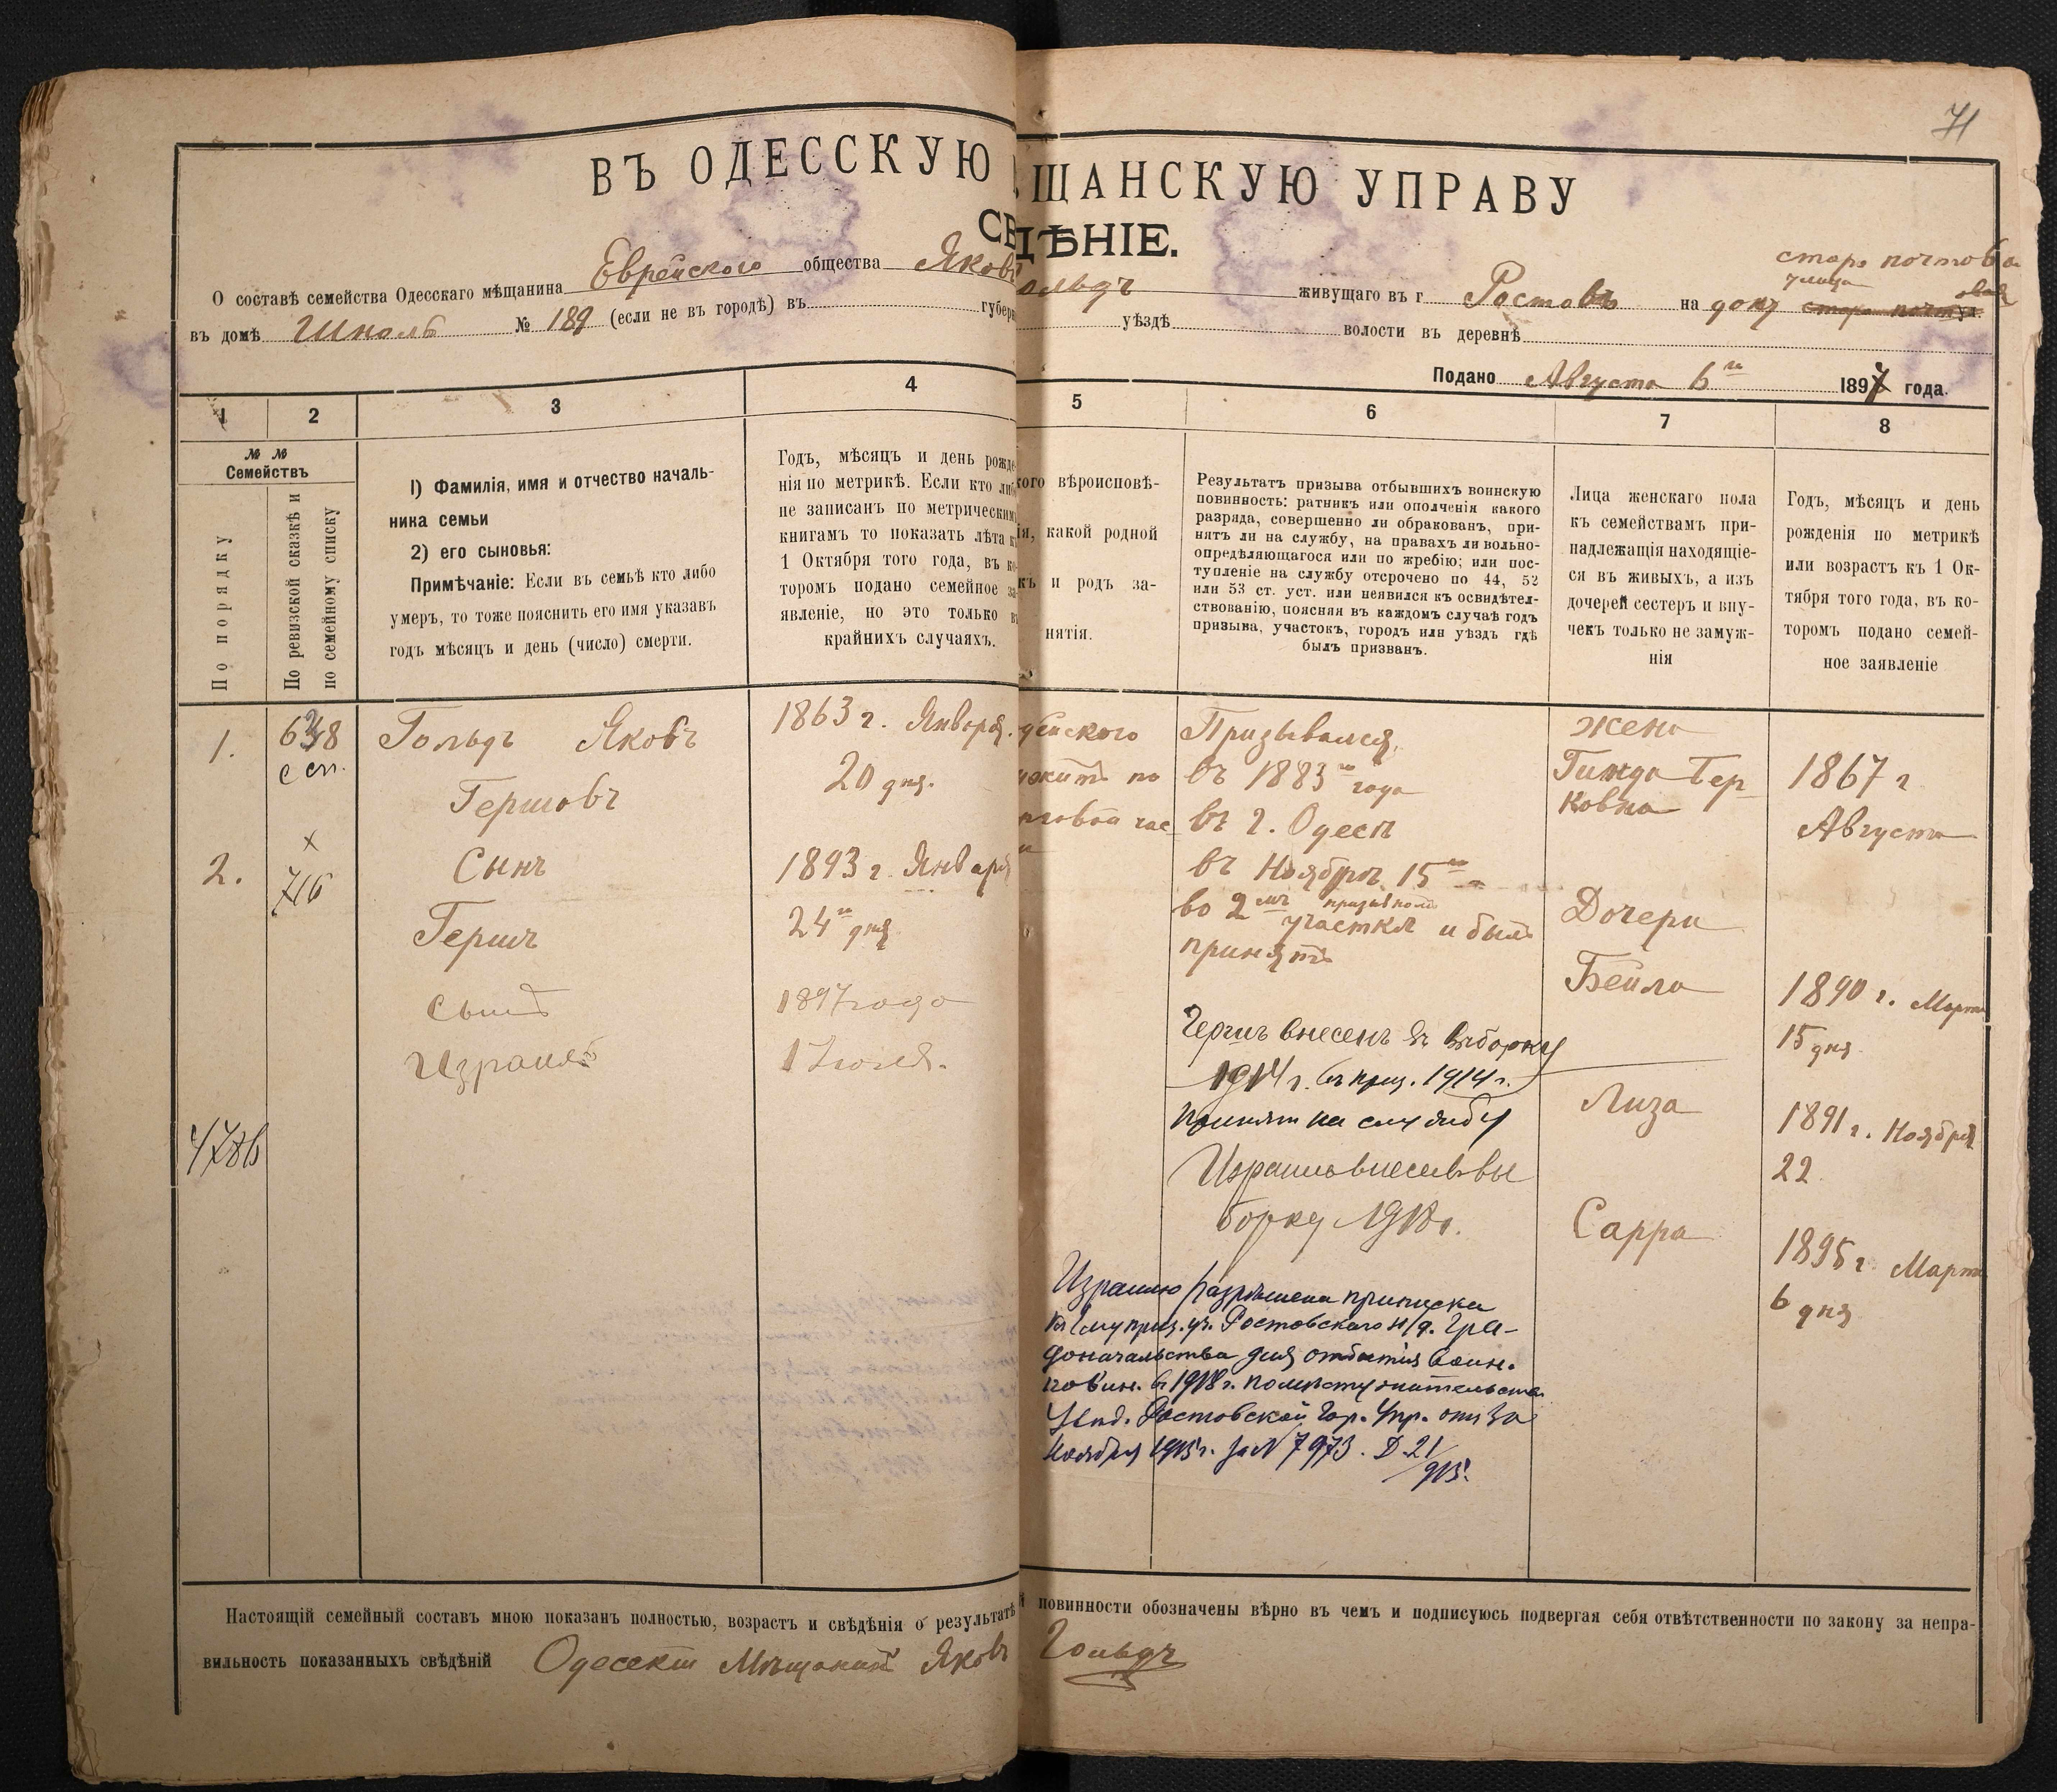 71
ВЪ ОДЕССКУЮ ЩАНСКУЮ УПРАВУ
СВ ДѢНІЕ.
О составѣ семейства Одесскаго мѣщанина Еврейского общества Яковъ ольдъ живущаго въ г Ростовъ на дону старо почтова
улица
въ домѣ Школь № 189 (если не въ городѣ) въ губер уѣздѣ волости въ деревнѣ
Подано Августа 6го 1897 года.
1 2 3 4
№ № Семействъ
По порядку
По ревизской сказкѣ и
по семейному списку
1) Фамилія, имя и отчество началь-
ника семьи
2) его сыновья:
Примѣчаніе: Если въ семьѣ кто либо
умеръ, то тоже пояснить его имя указавъ
годъ мѣсяцъ и день (число) смерти.
Годъ, мѣсяцъ и день рожде
нія по метрикѣ. Если кто либо
не записанъ по метрическимъ
книгамъ то показать лѣта к
1 Октября того года, въ ко
торомъ подано семейное за
явленіе, но это только въ
крайнихъ случаяхъ.
5 6 7 8
кого вѣроисповѣ-
ія, какой родной
къ и родъ за-
нятія.
Результатъ призыва отбывшихъ воинскую
повинность: ратникъ или ополченія какого
разряда, совершенно ли обракованъ, при-
нятъ ли на службу, на правахъ ли вольно-
опредѣляющагося или по жребію; или пос-
тупленіе на службу отсрочено по 44, 52
или 53 ст. уст. или неявился къ освидѣтел-
ствованію, поясняя въ каждомъ случаѣ годъ
призыва, участокъ, городъ или уѣздъ гдѣ
былъ призванъ.
Лица женскаго пола
къ семействамъ при-
надлежащія находящіе-
ся въ живыхъ, а изъ
дочерей сестеръ и вну-
чекъ только не замуж-
нія
Годъ, мѣсяцъ и день
рожденія по метрикѣ
или возрастъ къ 1 Ок-
тября того года, въ ко-
торомъ подано семей-
ное заявленіе
1.
сп.
Гольдъ Яковъ
Гершовъ
1863 г. Января
20 дня.
2.
716
Сынъ
Гершъ
1893 г. Января
24го дня
Сынъ
Израиль
1897 года
1 Июля.
4786
Призывался
въ 1883го года
въ г. Одесѣ
въ Ноябрѣ 15го
во 2мъ призывномъ
участкѣ и былъ
принятъ
Гершъ внесенъ въ выборку
1914 г. въ приз. 1914 г.
Принят на службу
Израиль внесенъ въ вы
борку 1918 г.
Израилю разрѣшена приписка
къ 1му приз. уч. Ростовскаго н/д. Гра-
доначальства для отбытія воин.
повин. въ 1918 г. по мѣсту жительства
Увѣд. Ростовской Гор. Упр. отъ
Ноября 1915 г. за N 7973. Д. 21/915.
жена
Гинда Бер
ковна
1867 г
Августа
Дочери
Бейла
1890 г. Марта
15 дня
Лиза
1891 г. Ноября
22
Сарра
1895 г Марта
6 дня
Настоящій семейный составъ мною показанъ полностью, возрастъ и свѣдѣнія о результатѣ й повинности обозначены вѣрно въ чемъ и подписуюсь подвергая себя отвѣтственности по закону за непра-
вильность показанныхъ свѣдѣній Одесскій Мѣщанинъ Яковъ Гольдъ